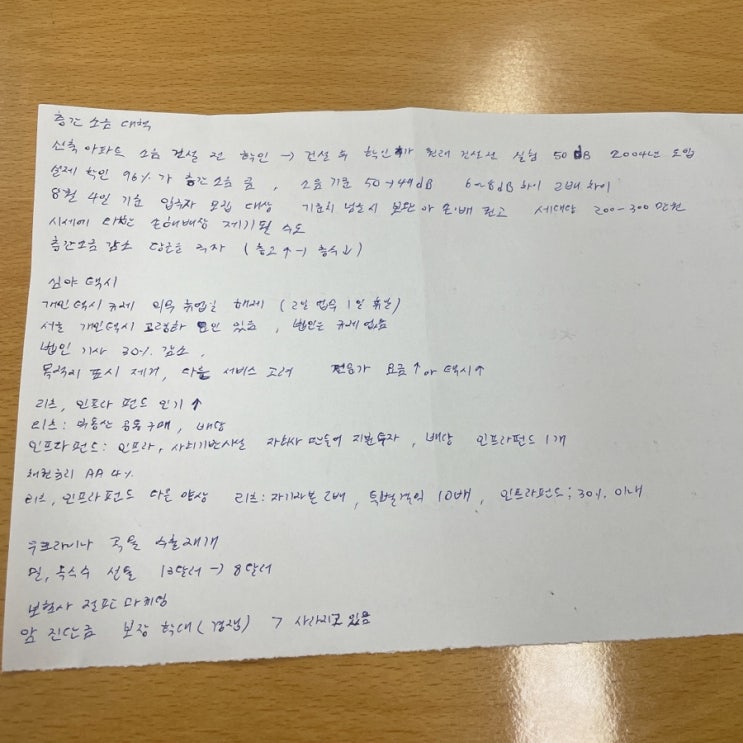 층간 소음 대책
신축 아파트 소음 건설 전 확인 → 건설 후 확인 원래 건설전 실험 50dB 2004년 도입
실제 확인 96%가 층간소음 큼, 소음 기준 50→49dB 6~8dB 차이 2배 차이
8월 4일 기준 입주자 모집 대상 기준치 넘을시 보완 or 손·배 권고 세대당 200~300만원
시세에 대한 손해배상 제기될 수도
층간소음 감소 당근은 주자 (층고↑→ 층수↓)
심야 택시
개인택시 규제 의무 휴업일 해제 (2일 업무 1일 휴무)
서울 개인택시 고령화 요인 있음, 법인은 규제 없음
법인 기사 30% 감소.
목적지 표시 제거, 다음 서비스 고려 전문가 요금↑ or 택시↑
리츠, 인프라 펀드 인기↑
리츠: 부동산 공동구매, 배당
인프라펀드: 인프라, 사회기반시설 자회사 만들어 지분투자, 배당 인프라펀드 1개
채권금리 AA 4%
리츠, 인프라펀드 다른 양상 리츠: 자기자본 2배, 특별결의 10배, 인프라펀드; 30% 이내
우크라이나 곡물 수출재개
밀, 옥수수 선물 13달러 → 8달러
보험사 절판 마케팅
암 진단금 보장 확대 (경쟁) > 사라지고 있음